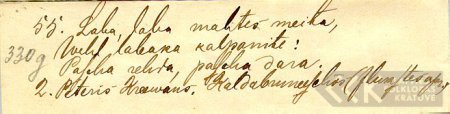 55. Laba, laba mahtes meita,
330g
Wehl labaka kalponite:
Pascha rehda, pascha dara.
2. Peteris Krewans. Kaldabruneschos (Ilukstes apr.)
FOLKLORAS
KRĀTUVE